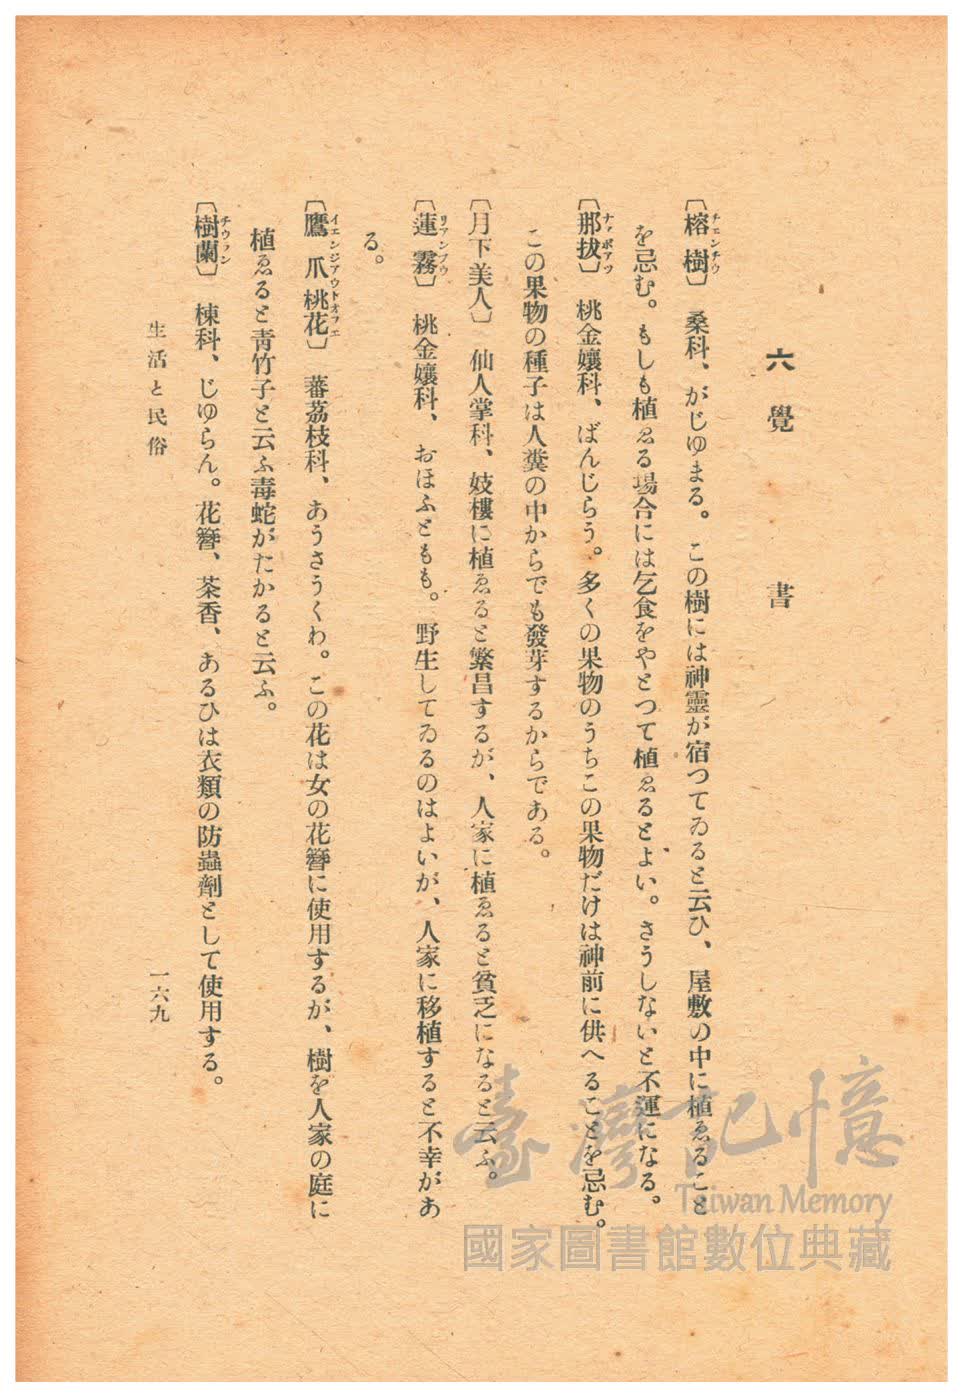 六　覺　書
〔榕樹〕　桑科、がじゆまる。この樹には神靈が宿つてゐると云ひ、屋敷の中に植ゑること
を忌む。もしも植ゑる場合には乞食をやとつて植ゑるとよい。さうしないと不運になる。
〔那拔〕　桃金孃科、ばんじらう。多くの果物のうちこの果物だけは神前に供へることを忌む。
この果物の種子は人糞の中からでも發芽するからである。
〔月下美人〕　仙人掌科、妓樓に植ゑると繁昌するが、人家に植ゑると貧乏になると云ふ。
〔蓮霧〕　桃金孃科、おほふともも。野生してゐるのはよいが、人家に移植すると不幸があ
る。
〔鷹爪桃花〕　蕃茘枝科、あうさうくわ。この花は女の花簪に使用するが、樹を人家の庭に
植ゑると靑竹子と云ふ毒蛇がたかると云ふ。
〔樹蘭〕　楝科、じゆらん。花簪、茶香、あるひは衣類の防蟲劑として使用する。
生活と民俗
一六九
臺灣記憶
Taiwan Memory
國家圖書館數位典藏